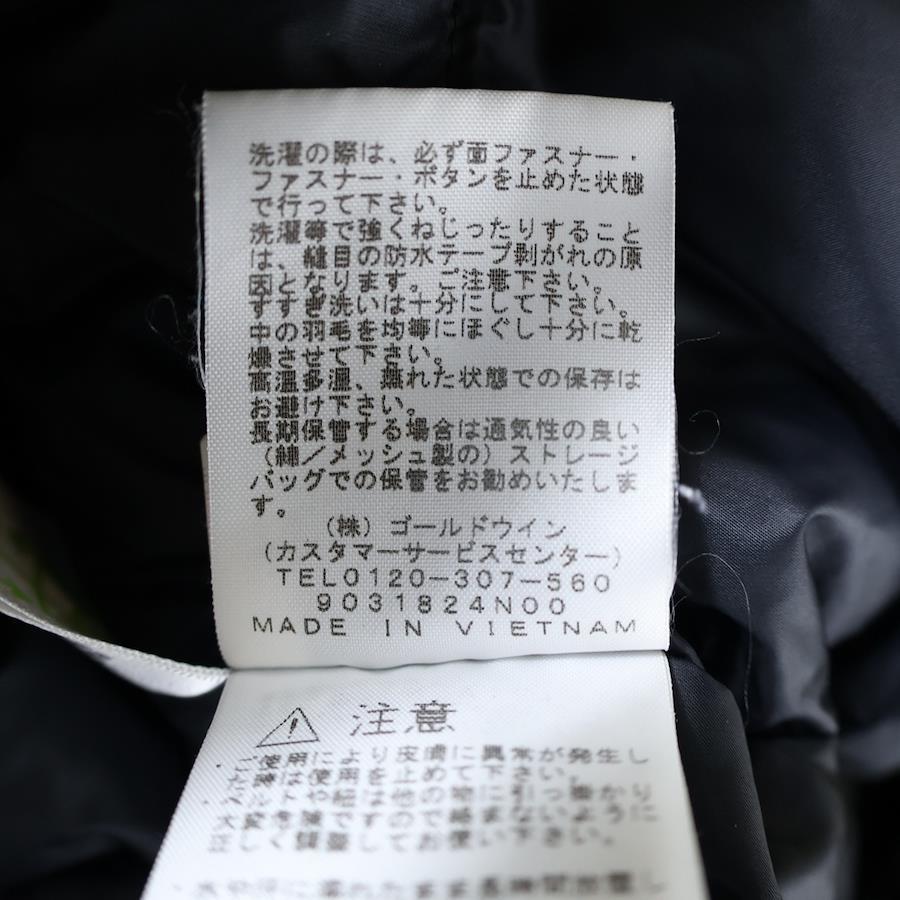 洗濯の際は、必ず面ファスナー・
ファスナー・ボタンを止めた状態
で行って下さい。
洗濯等で強くねじったりすること
は、縫目の防水テープ剥がれの原
因となります。ご注意下さい。
すすぎ洗いは十分にして下さい。
中の羽毛を均等にほぐし十分に乾
燥させて下さい。
高温多湿、蒸れた状態での保存は
お避け下さい。
長期保管する場合は通気性の良い
（綿／メッシュ製の）ストレージ
バッグでの保管をお勧めいたしま
す。
（株）ゴールドウイン
（カスタマーサービスセンター）
TEL0120-307-560
9031824N00
MADE IN VIETNAM
注意
ご使用により皮膚に異常が発生し
た時は使用を止めて下さい。
ベルトや紐は他の物に引っ掛かり
大変危険ですので絡まないように
正しく調整してお使い下さい。